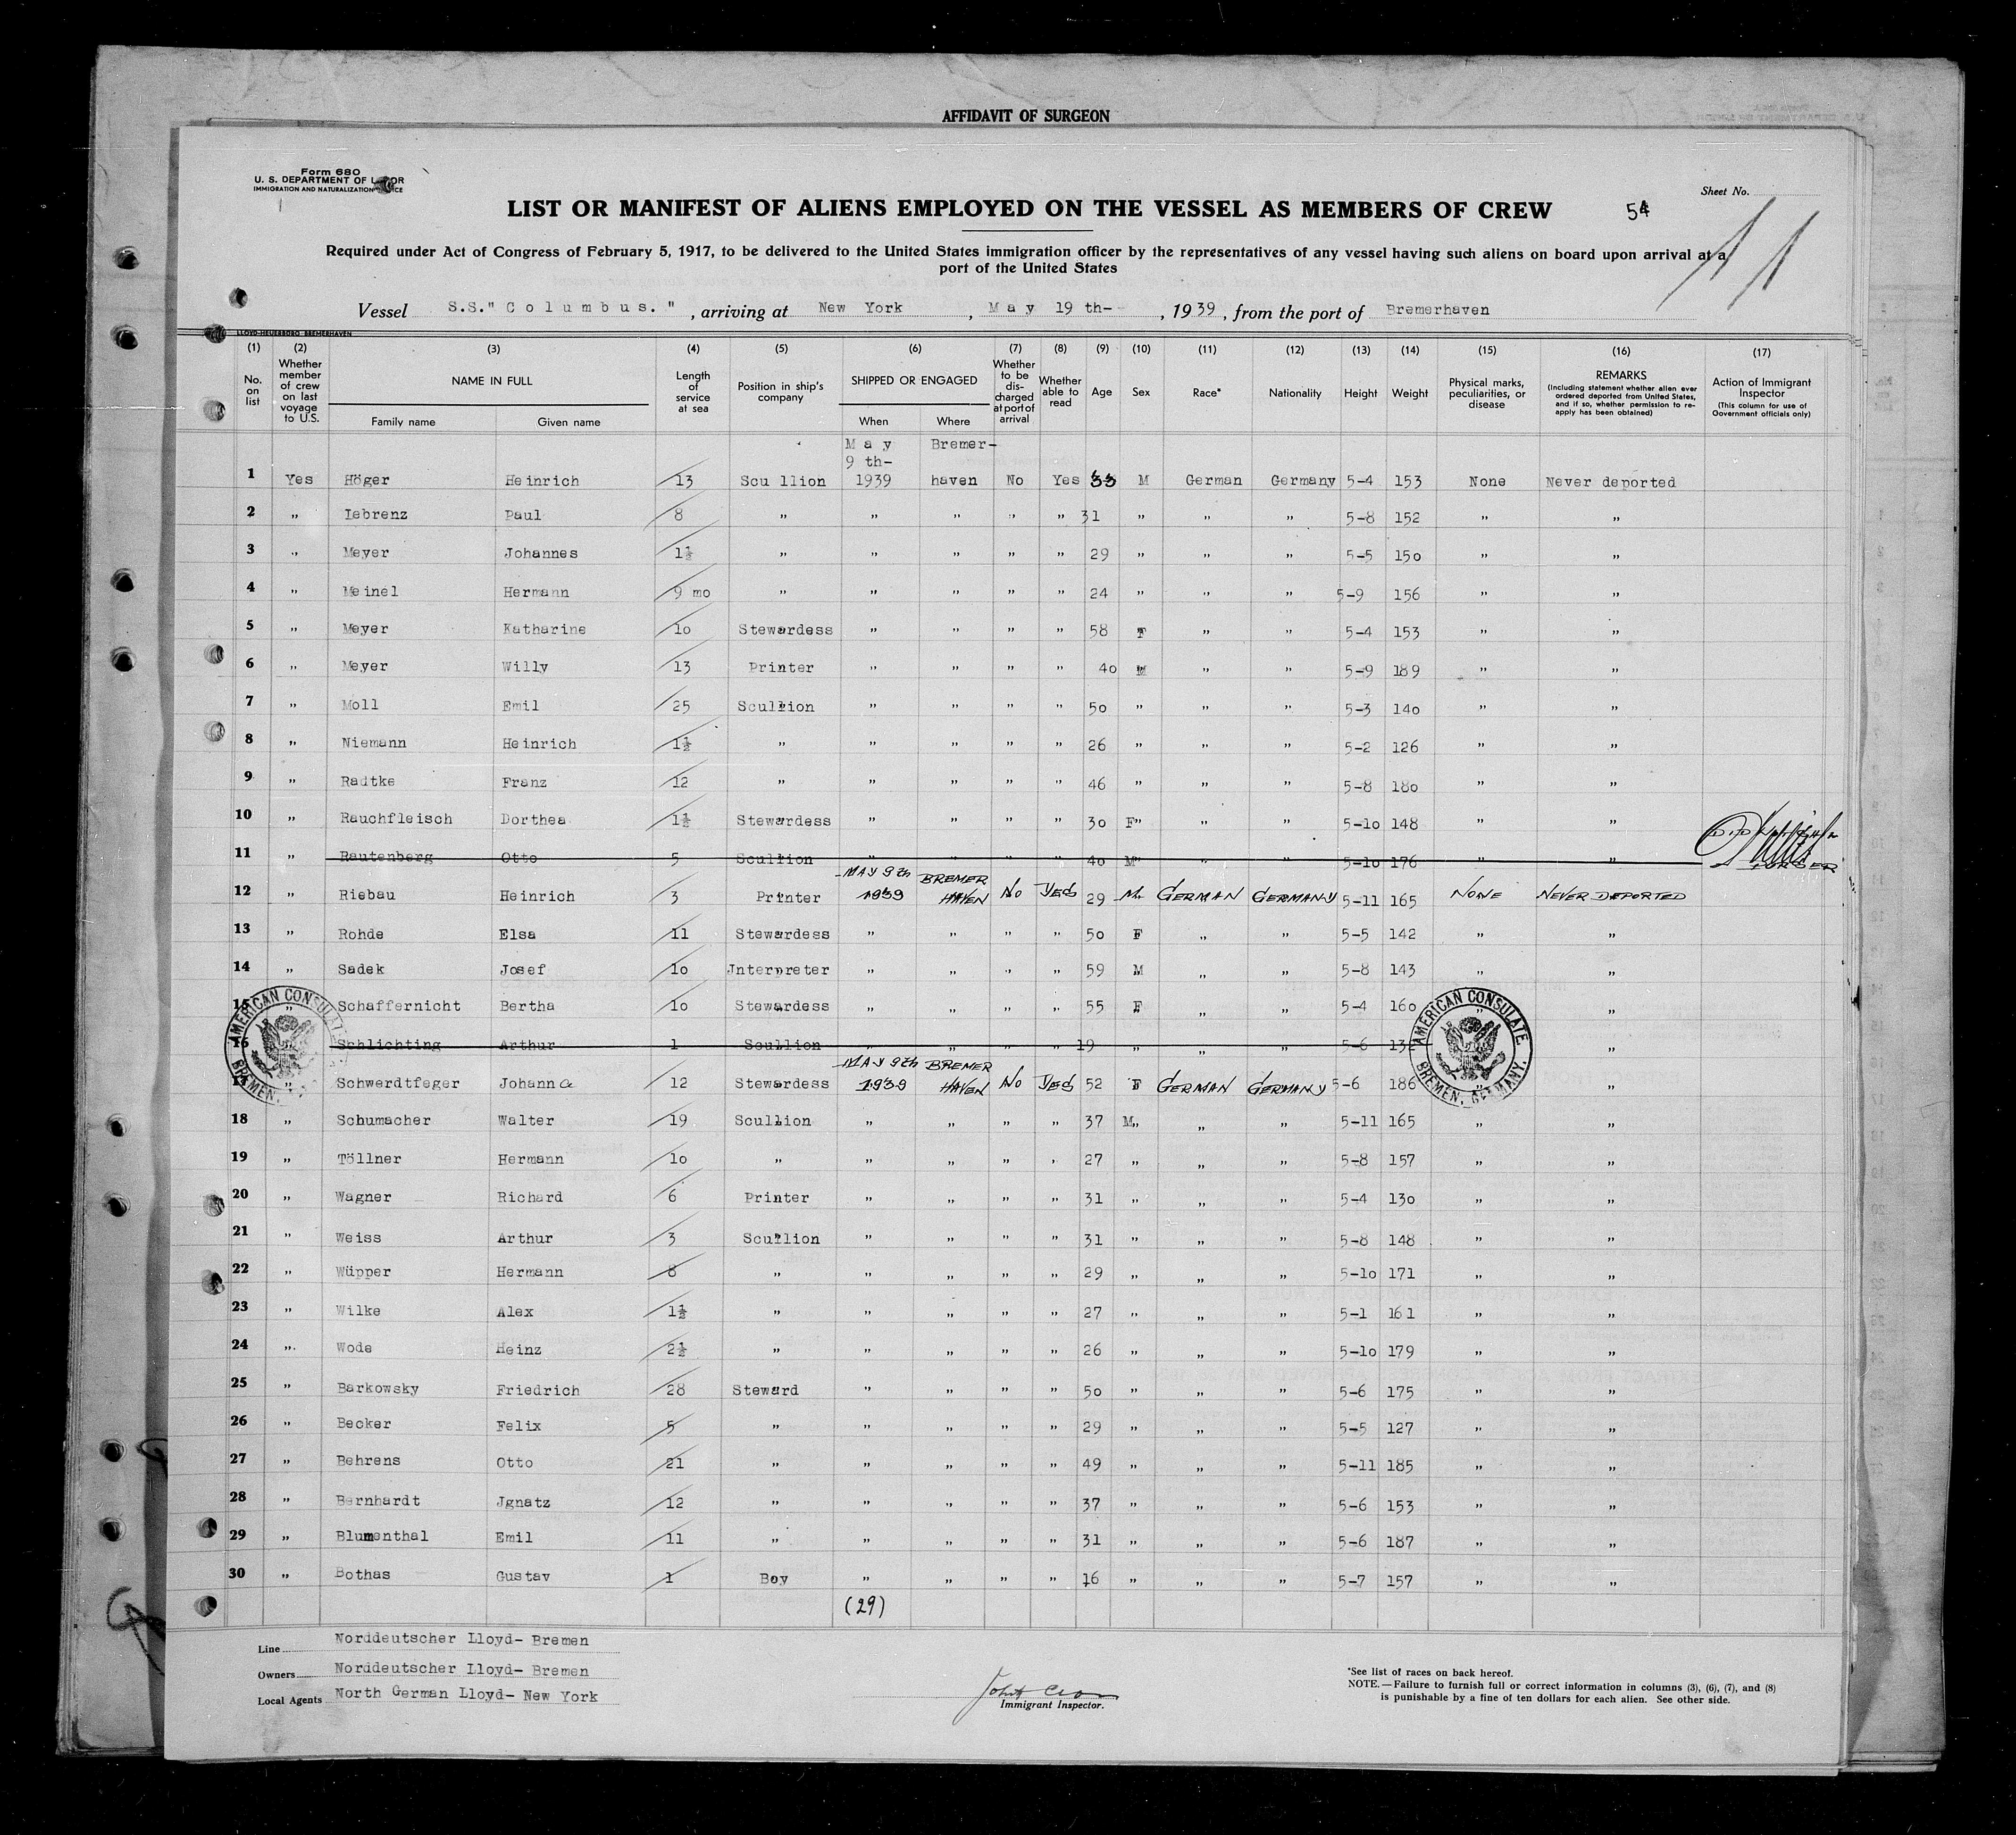 AFFIDAVIT OF SURGEON
Form 680
U. S. DEPARTMENT OF
IMMIGRATION AND NATURALIZATION
Sheet No.
LIST OR MANIFEST OF ALIENS EMPLOYED ON THE VESSEL AS MEMBERS OF CREW 54
11
Required under Act of Congress of February 5, 1917, to be delivered to the United States immigration officer by the representatives of any vessel having such aliens on board upon arrival at a
port of the United States
Vessel S.S."Columbus.", arriving at New York, May 19 th-, 1939, from the port of Bremerhaven
LLOYD-HEUERBÜRO BREMERHAVEN
(1) (2) (3) (4) (5) (6) (7) (8) (9) (10) (11) (12) (13) (14) (15) (16) (17)
No. on list
Whether member of crew on last voyage to U.S.
NAME IN FULL
Family name Given name
Length of service at sea
Position in ship's company
SHIPPED OR ENGAGED
When Where
Whether to be discharged at port of arrival
Whether able to read
Age Sex Race* Nationality Height Weight
Physical marks, peculiarities, or disease
REMARKS
(Including statement whether alien ever ordered deported from United States, and if so, whether permission to re-apply has been obtained)
Action of Immigrant Inspector
(This column for use of Government officials only)
May Bremer-
9 th-
1 Yes Höger Heinrich 13 Scullion 1939 haven No Yes 33 M German Germany 5-4 153 None Never deported
2 " Lebrenz Paul 8 " " " " " 31 " " " 5-8 152 " "
3 " Meyer Johannes 1½ " " " " " 29 " " " 5-5 150 " "
4 " Meinel Hermann 9 mo " " " " " 24 " " " 5-9 156 " "
5 " Meyer Katharine 10 Stewardess " " " " 58 F " " 5-4 153 " "
6 " Meyer Willy 13 Printer " " " " 40 M " " 5-9 189 " "
7 " Moll Emil 25 Scullion " " " " 50 " " " 5-3 140 " "
8 " Niemann Heinrich 1½ " " " " " 26 " " " 5-2 126 " "
9 " Radtke Franz 12 " " " " " 46 " " " 5-8 180 " "
10 " Rauchfleisch Dorthea 1½ Stewardess " " " " 30 F" " " 5-10 148 " "
11 " Rautenberg Otto 5 Scullion " " " " 40 M" " " 5-10 176 " "
PURSER
MAY 9th BREMER
12 " Riebau Heinrich 3 Printer 1939 HAVEN No Yes 29 M. GERMAN GERMANY 5-11 165 NONE NEVER DEPORTED
13 " Rohde Elsa 11 Stewardess " " " " 50 F " " 5-5 142 " "
14 " Sadek Josef 10 Jnterpreter " " " " 59 M " " 5-8 143 " "
15 " Schaffernicht Bertha 10 Stewardess " " " " 55 F " " 5-4 160 " "
16 " Schlichting Arthur 1 Scullion " " " " 19 " " " 5-6 " "
MAY 9th BREMER
17 " Schwerdtfeger Johanna 12 Stewardess 1939 HAVEN No Yes 52 F GERMAN GERMANY 5-6 186 " "
18 " Schumacher Walter 19 Scullion " " " " 37 M" " " 5-11 165 " "
19 " Töllner Hermann 10 " " " " " 27 " " " 5-8 157 " "
20 " Wagner Richard 6 Printer " " " " 31 " " " 5-4 130 " "
21 " Weiss Arthur 3 Scullion " " " " 31 " " " 5-8 148 " "
22 " Wüpper Hermann 8 " " " " " 29 " " " 5-10 171 " "
23 " Wilke Alex 1½ " " " " " 27 " " " 5-1 161 " "
24 " Wode Heinz 2½ " " " " " 26 " " " 5-10 179 " "
25 " Barkowsky Friedrich 28 Steward " " " " 50 " " " 5-6 175 " "
26 " Becker Felix 5 " " " " " 29 " " " 5-5 127 " "
27 " Behrens Otto 21 " " " " " 49 " " " 5-11 185 " "
28 " Bernhardt Jgnatz 12 " " " " " 37 " " " 5-6 153 " "
29 " Blumenthal Emil 11 " " " " " 31 " " " 5-6 187 " "
30 " Bothas Gustav 1 Boy " " " " 16 " " " 5-7 157 " "
(29)
AMERICAN CONSULATE BREMEN,
AMERICAN CONSULATE BREMEN, GERMANY.
Line Norddeutscher Lloyd- Bremen
Owners Norddeutscher Lloyd- Bremen
Local Agents North German Lloyd- New York
Immigrant Inspector.
*See list of races on back hereof.
NOTE.—Failure to furnish full or correct information in columns (3), (6), (7), and (8)
is punishable by a fine of ten dollars for each alien. See other side.